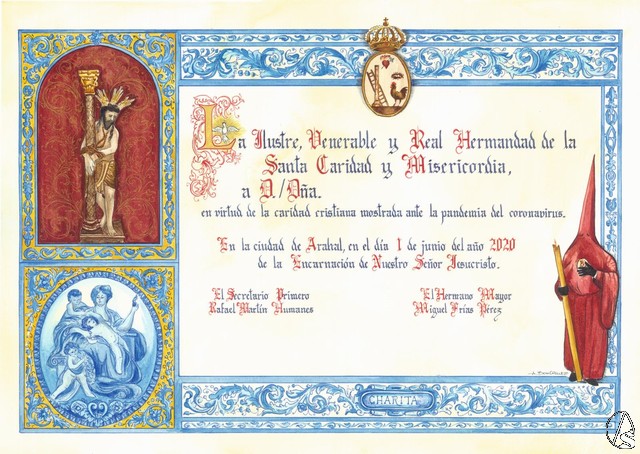 La Ilustre, Venerable y Real Hermandad de la
Santa Caridad y Misericordia,
a D./Dña.
en virtud de la caridad cristiana mostrada ante la pandemia del coronavirus.
En la ciudad de Arahal, en el día 1 de junio del año 2020
de la Encarnación de Nuestro Señor Jesucristo.
El Secretario Primero
Rafael Martín Humanes
El Hermano Mayor
Miguel Frías Pérez
CHARITA